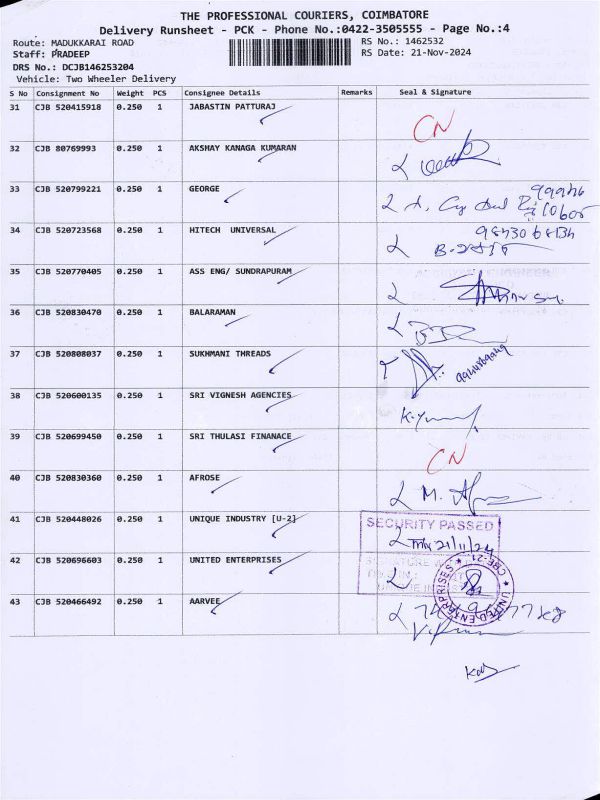 THE PROFESSIONAL COURIERS, COIMBATORE
Delivery Runsheet - PCK - Phone No.:0422-3505555 - Page No.:4
Route: MADUKKARAI ROAD RS No.: 1462532
Staff: PRADEEP RS Date: 21-Nov-2024
DRS No.: DCJB146253204
Vehicle: Two Wheeler Delivery
S No Consignment No Weight PCS Consignee Details Remarks Seal & Signature
31 CJB 520415918 0.250 1 JABASTIN PATTURAJ CN
32 CJB 80769993 0.250 1 AKSHAY KANAGA KUMARAN
33 CJB 520799221 0.250 1 GEORGE
34 CJB 520723568 0.250 1 HITECH UNIVERSAL
35 CJB 520770405 0.250 1 ASS ENG/ SUNDRAPURAM
36 CJB 520830470 0.250 1 BALARAMAN
37 CJB 520808037 0.250 1 SUKHMANI THREADS
38 CJB 520600135 0.250 1 SRI VIGNESH AGENCIES
39 CJB 520699450 0.250 1 SRI THULASI FINANACE CN
40 CJB 520830360 0.250 1 AFROSE
SECURITY PASSED
41 CJB 520448026 0.250 1 UNIQUE INDUSTRY [U-2] 21/11/24
42 CJB 520696603 0.250 1 UNITED ENTERPRISES
UNITED ENTERPRISES ★ CBE-21 ★
43 CJB 520466492 0.250 1 AARVEE